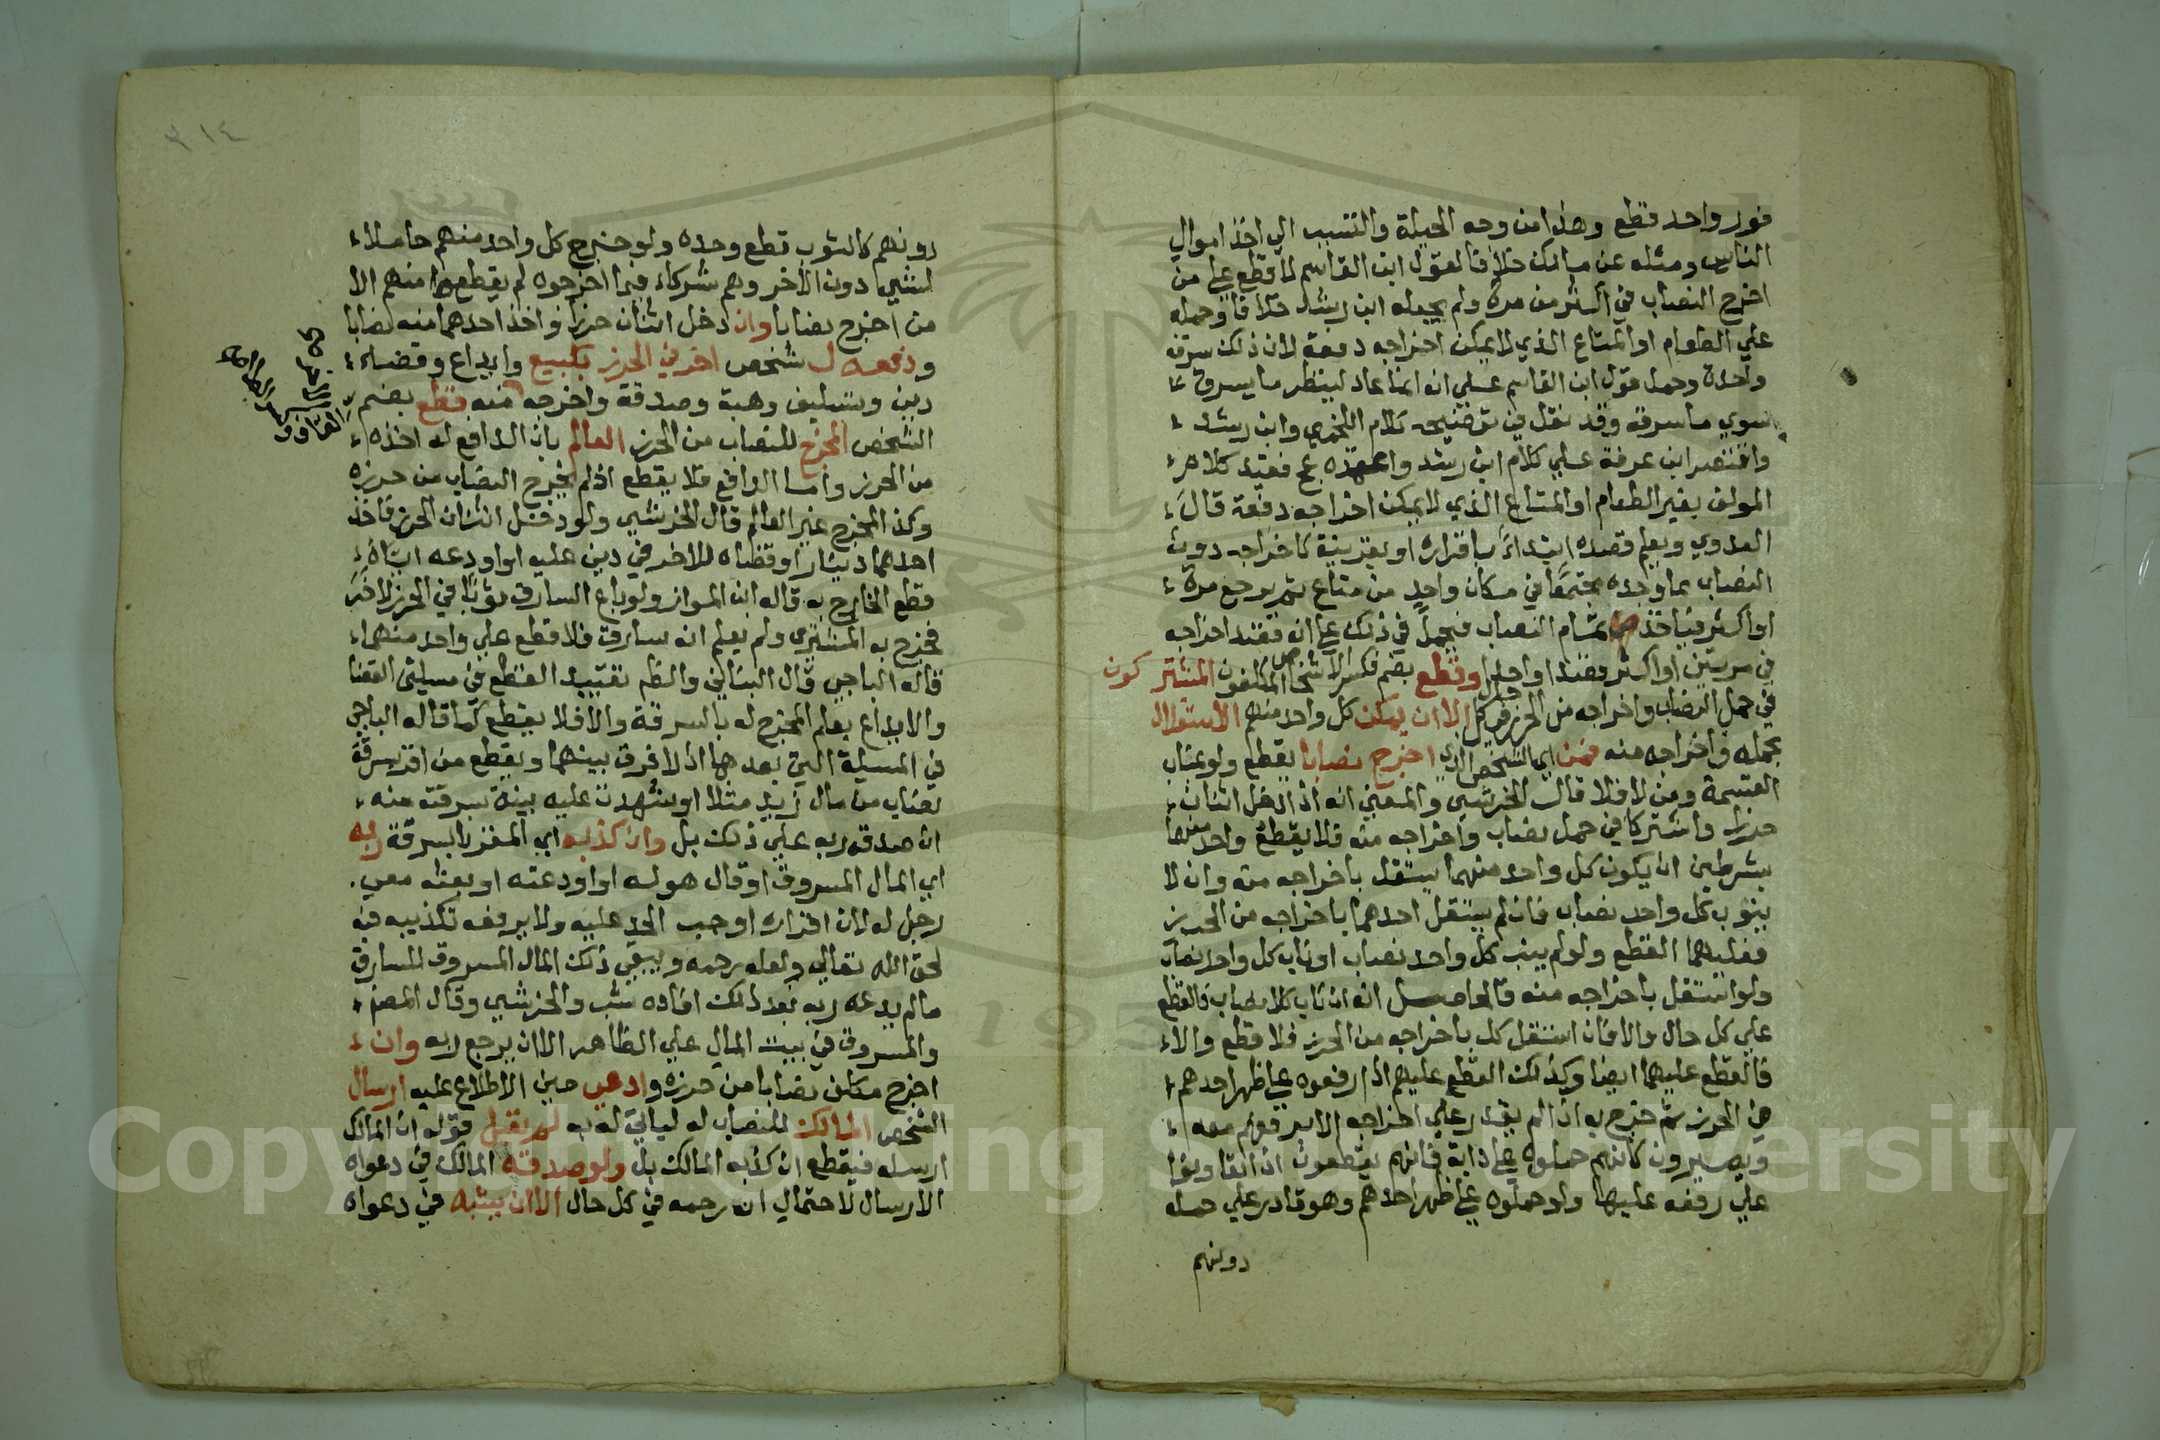 فور واحد قطع وهذا من وجه الحيلة والتسبب الي اخذ اموال
الناس ومثله عن مالك خلافا لقول ابن القاسم لا قطع علي من
اخرج النصاب في اكثر من مرة ولم يجعله ابن رشد خلافا وحمله
علي الطعام او المتاع الذي لا يمكن اخراجه دفعة لان ذلك سرقة
واحدة وحمل قول ابن القاسم علي انه انما عاد لينظر ما يسرق
سوي ما سرقه وقد نقل في توضيحه كلام اللخمي وابن رشد
واقتصر ابن عرفة علي كلام ابن رشد واعتمده عج فقيد كلام
المولف بغير الطعام او المتاع الذي لا يمكن اخراجه دفعة قال
العدوي ويعلم قصده ابتداء باقراره او بقرينة كاخراجه دون
النصاب مما وجده مجتمعا في مكان واحد من متاع ثم يرجع مرة
او اكثر فياخذ تمام النصاب فيحمل في ذلك علي انه قصد اخراجه
في مرتين او اكثر قصدا واحدا وقطع بضم فكسر الاشخاص المكلفون المشتركون
في حمل النصاب واخراجه من الحرز في كل حال الا ان يمكن كل واحد منهم الاستقلال
بحمله واخراجه منه فمن اي الشخص الذي اخرج نصابا يقطع ولو بمناب
القسمة ومن لا فلا قال الخرشي والمعني انه اذا دخل اثنان
حرزا واشتركا في حمل نصاب واخراجه منه فلا يقطع واحد منهما
بشرطين ان يكون كل واحد منهما يستقل باخراجه منه وان لا
ينوب كل واحد نصاب فان لم يستقل احدهما باخراجه من الحرز
فعليهما القطع ولو لم ينب كل واحد نصاب او ناب كل واحد نصاب
ولو استقل باخراجه منه فالحاصل انه ان ناب كلا نصاب فالقطع
علي كل حال والا فان استقل كل باخراجه من الحرز فلا قطع والا
فالقطع عليهما ايضا وكذلك القطع عليهم اذا رفعوه علي ظهر احدهم
في الحرز ثم خرج به اذا لم يقدر علي اخراجه الا برفعهم معه
ويصيرون كانهم حملوه علي دابة فانهم يقطعون اذا تعاونوا
علي رفعه عليها ولو حملوه علي ظهر احدهم وهو قادر علي حمله
دونهم
٣١٤
دونهم كالثوب قطع وحده ولو خرج كل واحد منهم حاملا
لشي دون الاخر وهم شركاء فيما اخرجوه لم يقطع منهم الا
من اخرج نصابا وان دخل اثنان حرزا واخذ احدهما منه نصابا
ودفعه ل شخص اخر في الحرز بكبيع وايداع وقضاء
دين وتسليف وهبة وصدقة واخرجه منه قطع بضم
الشخص المخرج للنصاب من الحرز العالم بان الدافع له اخذه
من الحرز واما الدافع فلا يقطع اذ لم يخرج النصاب من حرزه
وكذا المخرج غير العالم قال الخرشي ولو دخل اثنان الحرز فاخذ
احدهما دينارا وقضاه للاخر في دين عليه او اودعه اياه
قطع الخارج به قاله ابن المواز ولو باع السارق ثوبا في الحرز لاخر
فخرج به المشتري ولم يعلم انه سارق فلا قطع علي واحد منهما
قاله الباجي قال البناني والظم تقييد القطع في مسيلتي القضا
والايداع بعلم المخرج له بالسرقة والا فلا يقطع كما قاله الباجي
في المسيلة التي بعدها اذ لا فرق بينهما ويقطع من اقر بسرقة
نصاب من مال زيد مثلا او شهدت عليه بينة بسرقته منه
ان صدقه ربه علي ذلك بل وان كذبه اي المقر بالسرقة ربه
اي المال المسروق او قال هو له او اودعته او بعثه معي
رجل له لان اقراره اوجب الحد عليه ولا يرفعه تكذيبه فيه
لحق الله تعالي ولعله رحمه ويبقي ذلك المال المسروق للسارق
ما لم يدعه ربه بعد ذلك افاده شب والخرشي وقال المصنـ
والمسروق في بيت المال علي الظاهر الا ان يرجع ربه وان
اخرج مكلف نصابا من حرزه وادعي حين الاطلاع عليه ارسال
الشخص المالك للنصاب له لياتي له به لم يقبل قوله ان المالك
ارسله فيقطع ان كذبه المالك بل ولو صدقه المالك في دعواه
الارسال لاحتمال انه رحمه في كل حال الا ان يشبه في دعواه